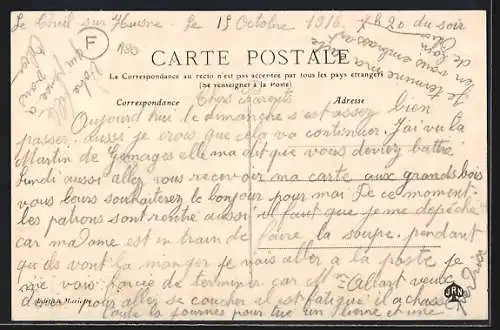 Le Theil sur Huisne. Le 15 Octobre 1916. 7h20 du soir
F
CARTE POSTALE
La Correspondance au recto n'est pas acceptée par tous les pays étrangers
(Se renseigner à la Poste)
Correspondance
Adresse
Chers
Aujourd'hui le dimanche s'est assez bien
passer. aussi je crois que cela va continuer. J'ai vu la
Martin de Gemages elle ma dit que vous deviez battre
lundi aussi allez vous recevoir ma carte aux grands bois
vous leurs souhaiterez le bonjour pour moi. De ce moment
les patrons sont rentré aussi il faut que je me dépêche
car madame est en train de faire la soupe. pendant
qu'ils vont la manger je vais aller a la poste je
suis forcée de terminer car Mr Allart veut
pour aller se coucher il est fatigué il a chassé
toute la journée pour tué un lièvre et une
perdrix
Je termine
en vous embrassant
de loin
Votre fille
qui pense
a vous